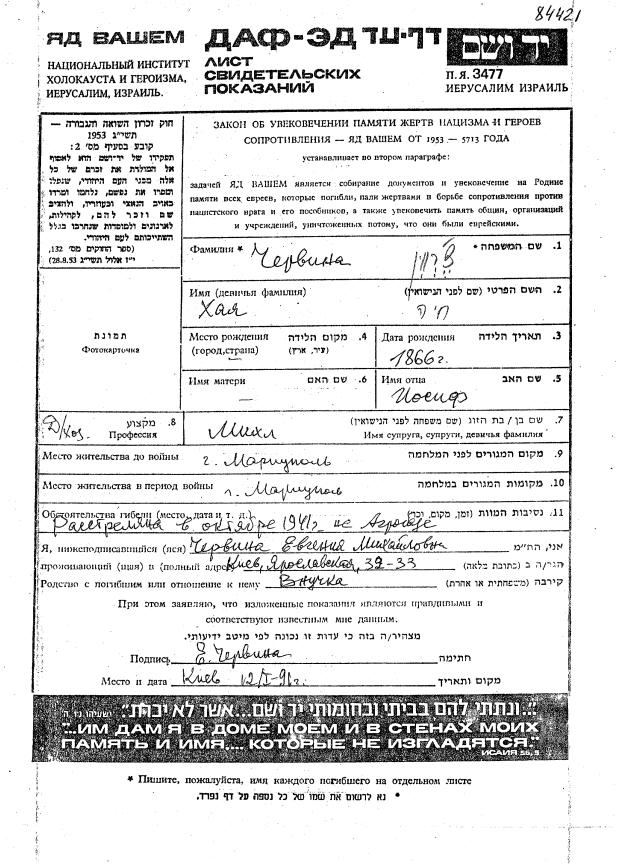 84421
ЯД ВАШЕМ
НАЦИОНАЛЬНЫЙ ИНСТИТУТ
ХОЛОКАУСТА И ГЕРОИЗМА,
ИЕРУСАЛИМ, ИЗРАИЛЬ.
ДАФ-ЭД דף-עד
ЛИСТ
СВИДЕТЕЛЬСКИХ
ПОКАЗАНИЙ
יד ושם
П.Я. 3477
ИЕРУСАЛИМ ИЗРАИЛЬ
חוק זכרון השואה והגבורה —
תשי"ג 1953
קובע בסעיף מס' 2:
תפקידו של יד-ושם הוא לאסוף
אל המולדת את זכרם של כל
אלה מבני העם היהודי, שנפלו
ומסרו את נפשם, נלחמו ומרדו
באויב הנאצי ובעוזריו, ולהציב
שם וזכר להם, לקהילות,
לארגונים ולמוסדות שנחרבו בגלל
השתייכותם לעם היהודי.
(ספר החוקים מס' 132,
י"ז אלול תשי"ג 28.8.53)
ЗАКОН ОБ УВЕКОВЕЧЕНИИ ПАМЯТИ ЖЕРТВ НАЦИЗМА И ГЕРОЕВ
СОПРОТИВЛЕНИЯ — ЯД ВАШЕМ ОТ 1953 — 5713 ГОДА
устанавливает во втором параграфе:
задачей ЯД ВАШЕМ является собирание документов и увековечение на Родине
памяти всех евреев, которые погибли, пали жертвами в борьбе сопротивления против
нацистского врага и его пособников, а также увековечить память общин, организаций
и учреждений, уничтоженных потому, что они были еврейскими.
Фамилия * Червина 1. שם המשפחה *
Имя (девичья фамилия) 2. השם הפרטי (שם לפני הנישואין)
Хая חיה
תמונת
Фотокарточка
Место рождения 4. מקום הלידה
(город,страна) (עיר, ארץ)
—
Дата рождения 3. תאריך הלידה
1866 г.
Имя матери 6. שם האם
—
Имя отца 5. שם האב
Иосиф
Д/хоз. 8. מקצוע
Профессия
Михл 7. שם בן / בת הזוג (שם משפחה לפני הנישואין)
Имя супруга, супруги, девичья фамилия
Место жительства до войны 9. מקום המגורים לפני המלחמה
г. Мариуполь
Место жительства в период войны 10. מקומות המגורים במלחמה
г. Мариуполь
Обстоятельства гибели (место, дата и т. д.) 11. נסיבות המוות (זמן, מקום, וכו')
Расстреляна в октябре 1941г. на Агробазе
Я, нижеподписавшийся (аяся) Червина Евгения Михайловна אני, הח"מ
проживающий (щая) в (полный адрес) Киев, Ярославская, 32-33 הגר/ה ב (כתובת מלאה)
Родство с погибшим или отношение к нему Внучка קירבה (משפחתית או אחרת)
При этом заявляю, что изложенные показания являются правдивыми и
соответствуют известным мне данным.
מצהיר/ה בזה כי עדות זו נכונה לפי מיטב ידיעותי.
Подпись Е. Червина חתימה
Место и дата Киев 12/I-91г. מקום ותאריך
"...ונתתי להם בביתי ובחומותי יד ושם... אשר לא יכרת" ישעיהו נו, ה
"...ИМ ДАМ Я В ДОМЕ МОЕМ И В СТЕНАХ МОИХ
ПАМЯТЬ И ИМЯ.... КОТОРЫЕ НЕ ИЗГЛАДЯТСЯ"
ИСАИЯ 56, 5
* Пишите, пожалуйста, имя каждого погибшего на отдельном листе
נא לרשום את שמו של כל נספה על דף נפרד. *